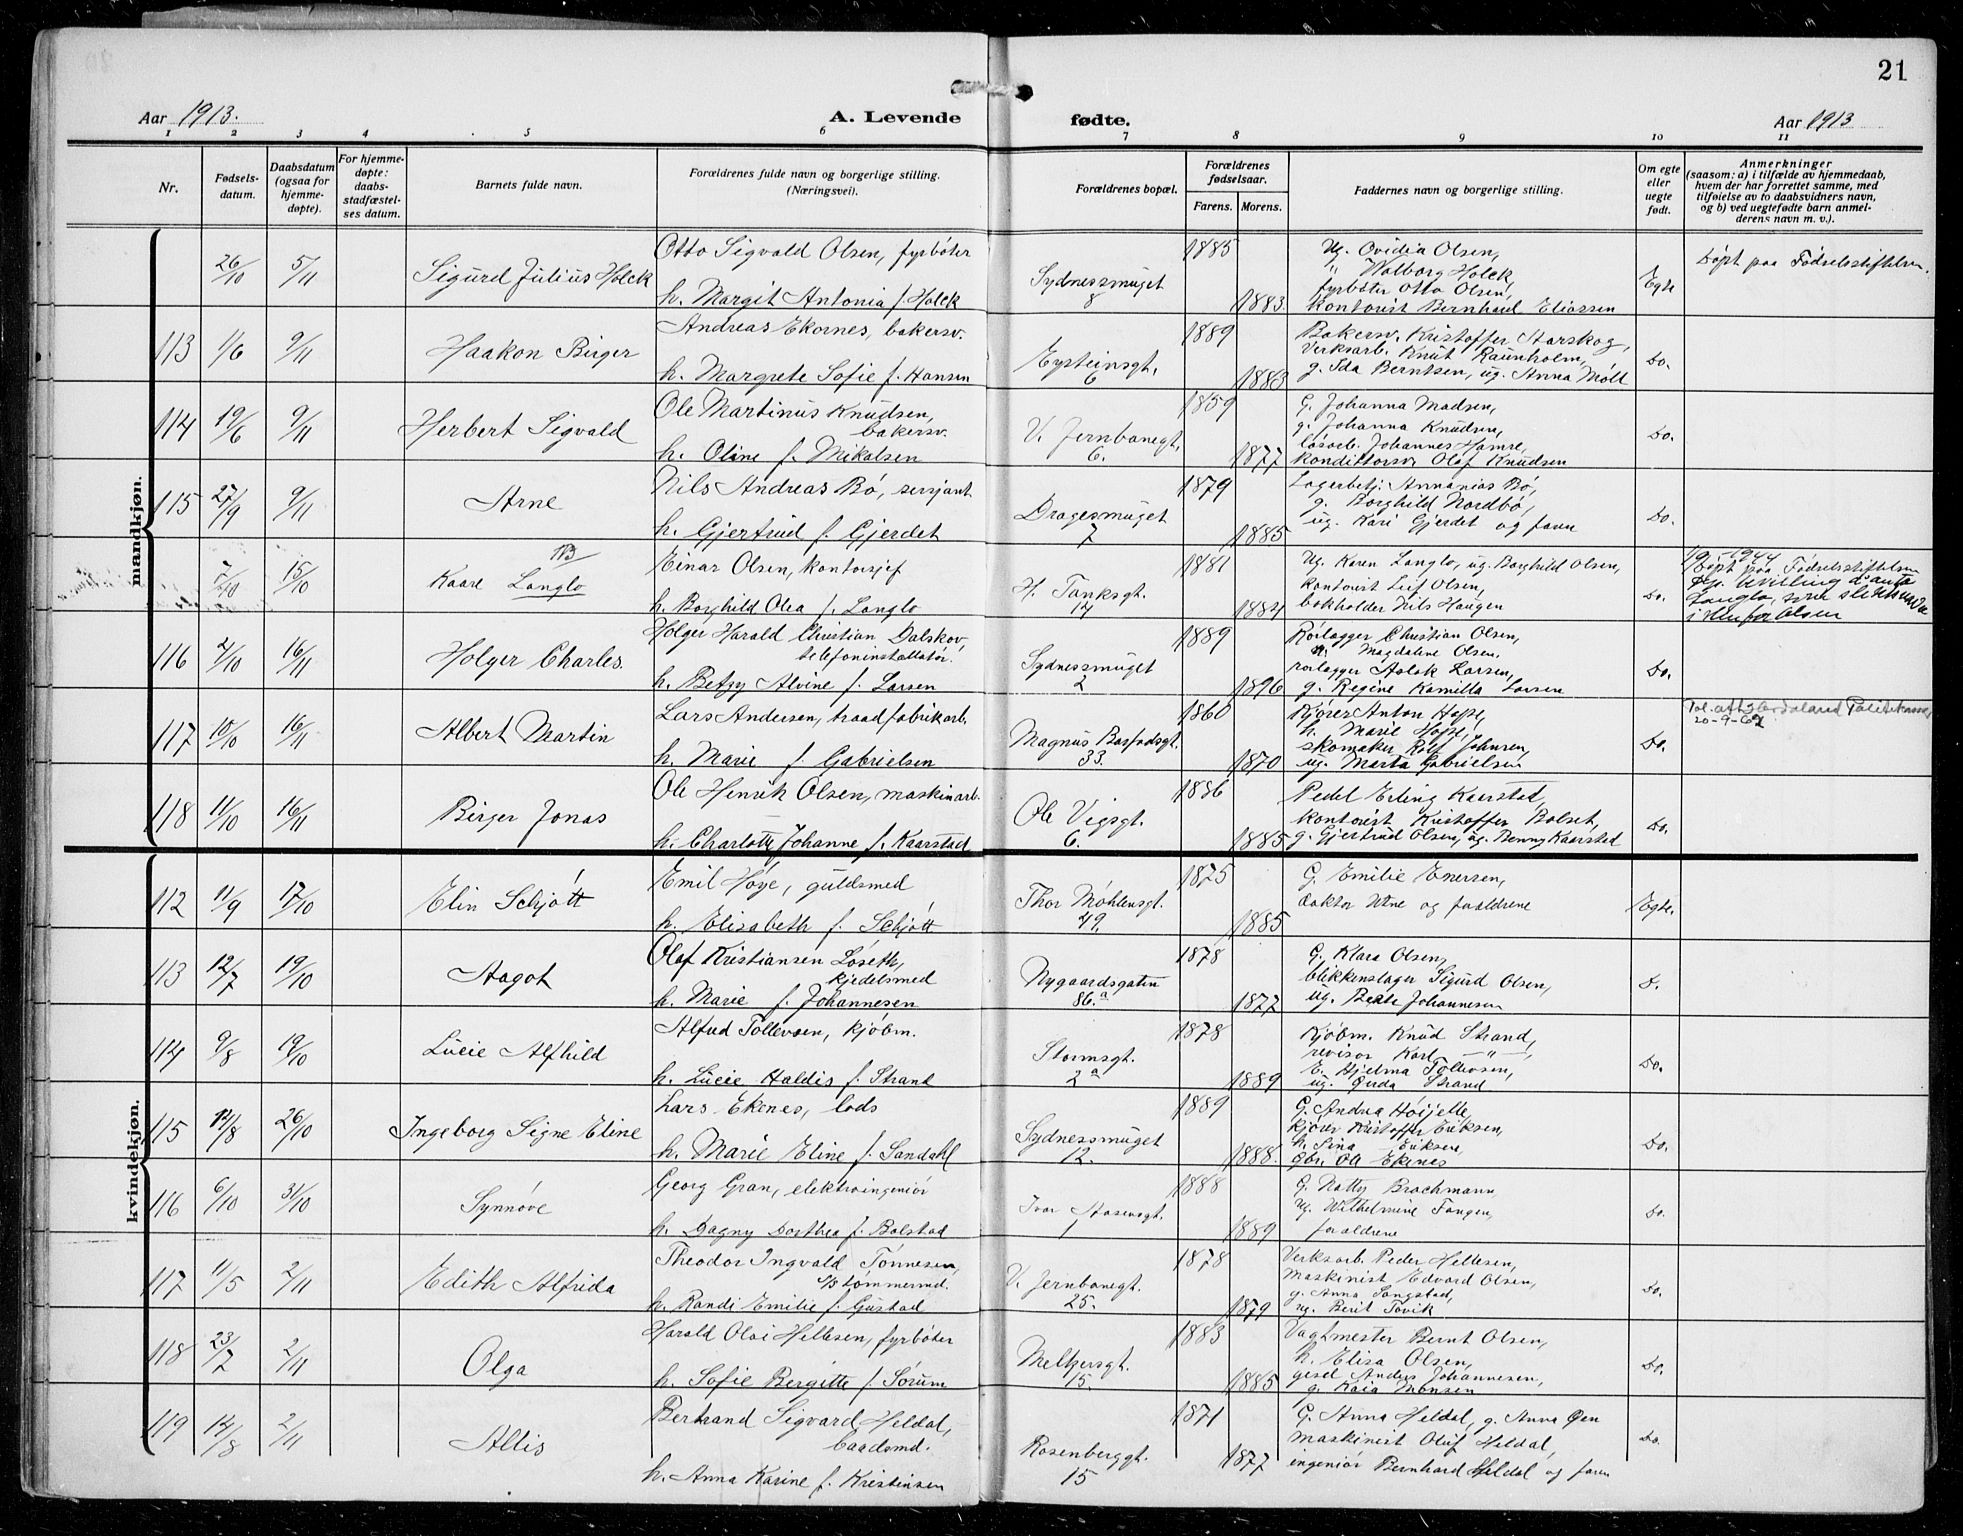 21
Aar 1913. A. Levende fødte. Aar 1913
1 2 3 4 5 6 7 8 9 10 11
Nr. Fødsels-datum. Daabsdatum (ogsaa for hjemme-døpte). For hjemme-døpte: daabs-stadfæstel-ses datum. Barnets fulde navn. Forældrenes fulde navn og borgerlige stilling. (Næringsvei). Forældrenes bopæl. Forældrenes fødselsaar. Farens. Morens. Faddernes navn og borgerlige stilling. Om egte eller uegte født. Anmerkninger (saasom: a) i tilfælde av hjemmedaab, hvem der har forrettet samme, med tilføielse av to daabsvidners navn, og b) ved uegtefødte barn anmel-derens navn m. v.).
mandkjøn.
26/10 5/11 Sigurd Julius Holck Otto Sigvald Olsen, fyrbøter Sydnessmuget 8 1885 Ug. Ovidia Olsen, Egte Døpt paa Fødselsstiftelsen.
" Walborg Holck,
fyrbøter Otto Olsen,
h. Margit Antonia f. Holck 1883 kontorist Bernhard Eliassen
113 1/6 9/11 Haakon Birger Andreas Ekornes, bakersv. Eysteinsgt. 6 1889 Bakersv. Kristoffer Starskog, Do.
Verksarb. Knut Raunholm,
h. Margrete Sofie f. Hansen 1883 g. Ida Berntsen, ug. Anna Moll
114 19/6 9/11 Herbert Sigvald Ole Martinus Knudsen, bakersv. V. Jernbanegt. 6. 1859 G. Johanna Madsen, Do.
g. Johanna Knudsen,
løsarb. Johannes Hamre,
h. Oline f. Mikalsen 1877 kondittorsv. Olaf Knudsen
115 27/9 9/11 Arne Nils Andreas Bø, sersjant Dragesmuget 7 1879 Lagerbetj. Annanias Bø, Do.
g. Borghild Nordbø,
h. Gjertrud f. Gjerdet 1885 ug. Kari Gjerdet og faren
7/10 15/10 Kaare Langlo NB Einar Olsen, kontorsjef H. Tanksgt. 14 1881 Ug. Karen Langlo, ug. Borghild Olsen, Do. Døpt paa Fødselsstiftelsen
kontorist Leif Olsen,
h. Borghild Olea f. Langlo 1884 bokholder Nils Haugen
Langlo, som slektsnavn
i stenfor Olsen
116 2/10 16/11 Holger Charles. Holger Harald Christian Dalskov, telefoninstallatør. Sydnessmuget 2 1889 Rørlægger Christian Olsen, Do.
h. Magdalene Olsen,
rørlægger Aslak Larsen,
h. Betzy Alvine f. Larsen 1896 g. Regine Kamilla Larsen
117 10/10 16/11 Albert Martin Lars Andersen, traadfabrikarb. Magnus Barfodsgt. 33. 1860 Kjører Anton Hope, Do. 20-9-62
h. Marie Hope,
skomaker Rolf Johnsen,
h. Marie f. Gabrielsen 1870 ug. Marta Gabrielsen
118 11/10 16/11 Birger Jonas Ole Henrik Olsen, maskinarb. Ole Vigsgt. 6. 1886 Pedel Erling Kaarstad, Do.
kontorist Kristoffer Bolset,
h. Charlotte Johanne f. Kaarstad 1885 g. Gjertrud Olsen, ug. Benny Kaarstad
kvindekjøn.
112 11/9 17/10 Elin Schjøtt Emil Høye, guldsmed Thor Møhlensgt. 49. 1875 G. Emilie Enersen, Egte.
h. Elisabeth f. Schjøtt 1885 doktor Wine og forældrene
113 12/7 19/10 Aagot Olaf Kristiansen Løseth, kjedelsmed Nygaardsgaten 86.a 1878 G. Klara Olsen, D.
blikkenslager Sigurd Olsen,
h. Marie f. Johannesen 1877 ug. Berte Johannesen
114 9/8 19/10 Lucie Alfhild Alfred Tollevsen, kjøbm. Stormsgt. 2a 1878 Kjøbm. Knud Strand, Do.
revisor Karl —"—,
E. Hjelma Tollevsen,
h. Lucie Haldis f. Strand 1889 ug. Gerda Strand
115 14/8 26/10 Ingeborg Signe Eline Lars Ekenes, lods Sydnessmuget 12. 1889 G. Andrea Høijelle, Do.
kjører Kristoffer Eriksen,
h. Sina Eriksen,
h. Marie Eline f. Sandahl 1888. gbr. Ole Ekenes
116 6/10 31/10 Synnøve Georg Gran, elektroingeniør Ivar Aasensgt. 1 1888 G. Natty Brachmann, Do.
ug. Wilhelmine Fangen,
h. Dagny Dorthea f. Bolstad 1889 forældrene
117 11/5 2/11 Edith Alfrida Theodor Ingvald Tønnesen, s/s tømmermd. V. Jernbanegt. 25. 1878 Verksarb. Peder Hellesen, Do.
maskinist Edvard Olsen,
g. Anna Sangstad,
h. Randi Emilie f. Gustad 1879 ug. Berit Tovik
118 23/7 2/11 Olga Harald Olai Hellesen, fyrbøter Meltzersgt. 15. 1883 Vagtmester Bernt Olsen, Do.
h. Elisa Olsen,
gesel Anders Johannesen,
h. Sofie Bergitte f. Sørum 1885 g. Kaia Monsen
119 14/8 2/11 Allis Bertrand Sigvard Heldal, baadsmd. Rosenberggt. 15 1871 G. Anna Heldal, g. Anna Øen Do.
maskinist Oluf Heldal,
h. Anna Karine f. Kristensen 1877 ingeniør Bernhard Heldal og faren